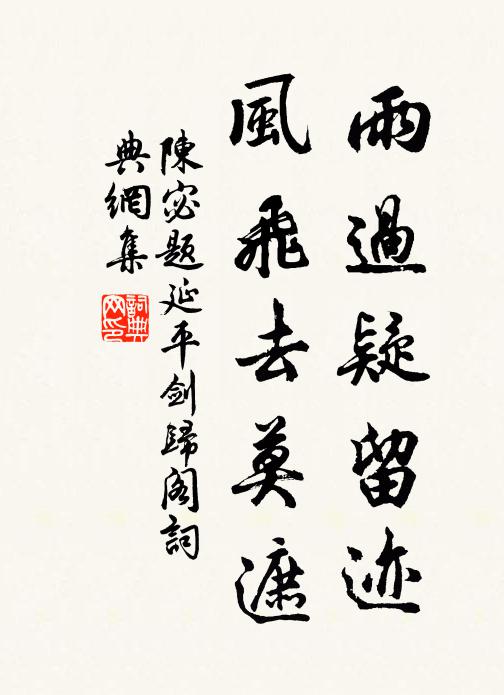 雨過疑留迹
風飛去莫遮
陳宓題延平劍歸閣詞
典網集
詞典
网印